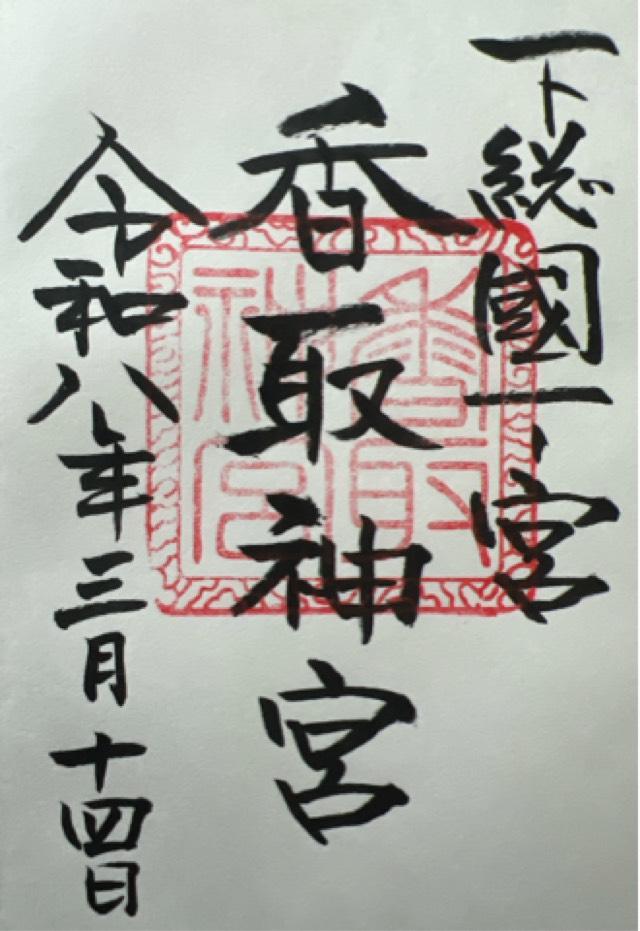 下総國一宮
香取神宮
令和八年三月十四日
香取神宮